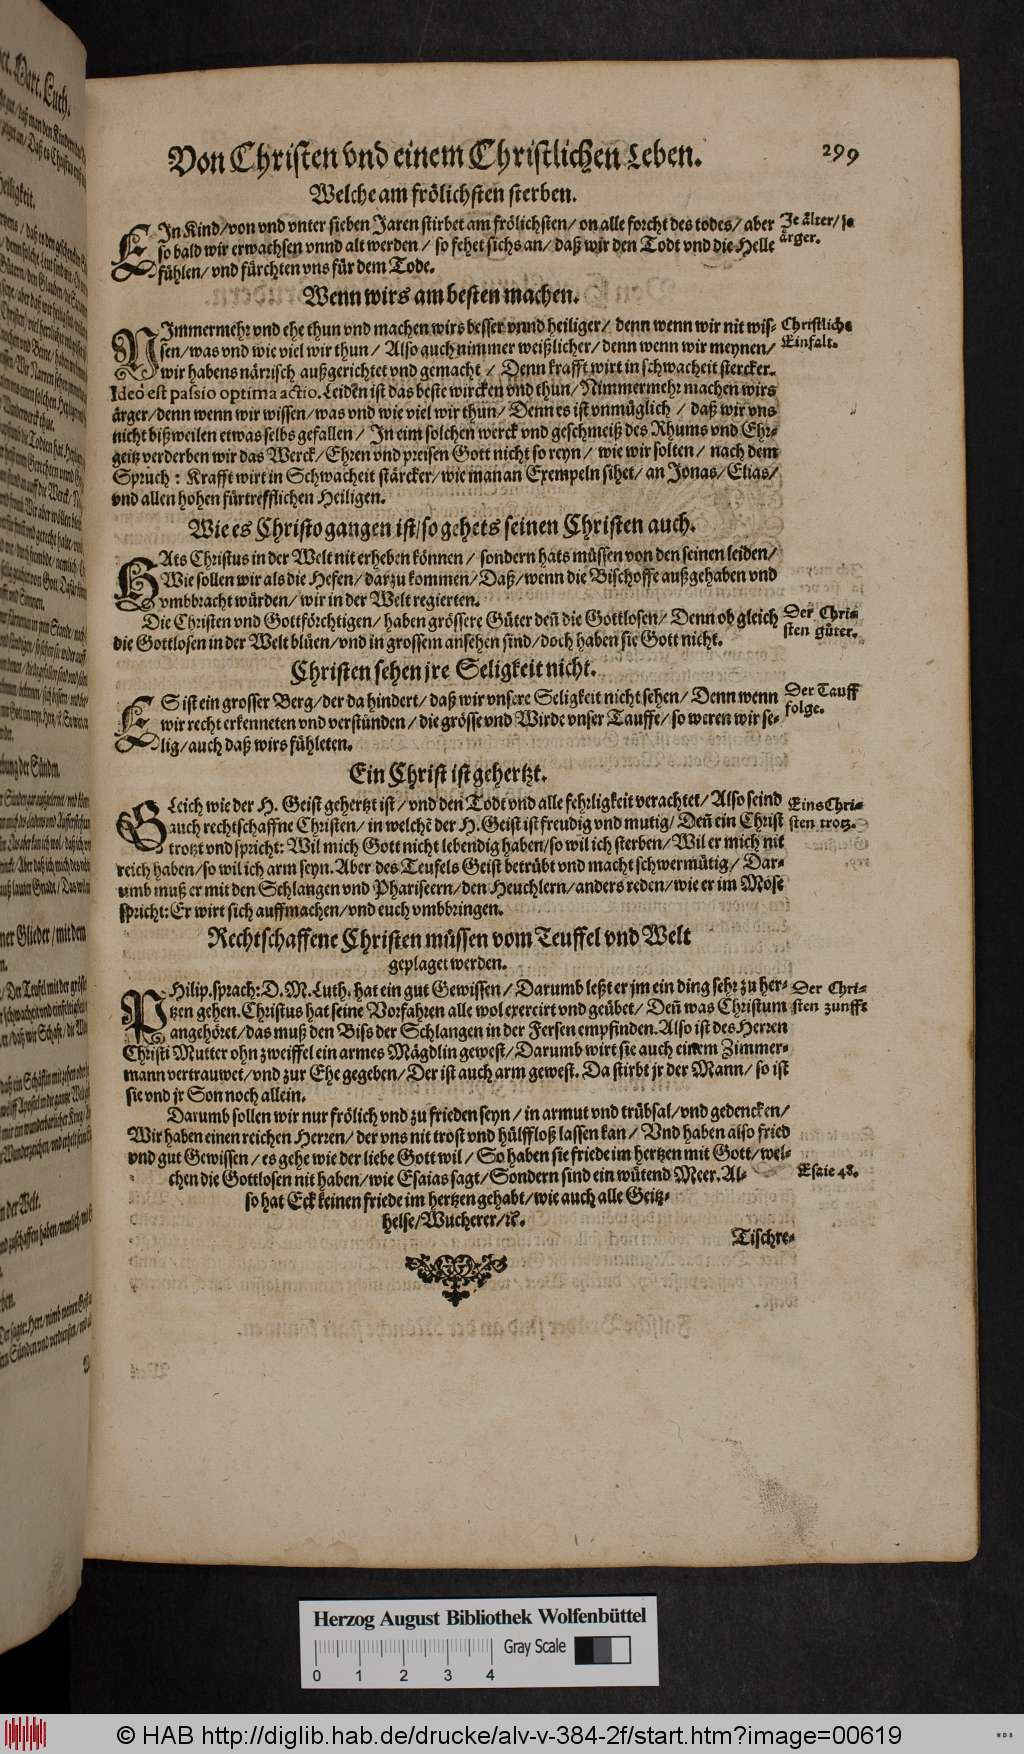 Von Christen vnd einem Christlichen Leben. 299
Welche am frölichsten sterben.
EIn Kind/von vnd vnter sieben Jaren stirbet am frölichsten/ on alle forcht des todes/ aber
so bald wir erwachsen vnnd alt werden/ so fehet sichs an/ daß wir den Todt vnd die Helle
fühlen/ vnd fürchten vns für dem Tode.
Je älter/ je
ärger.
Wenn wirs am besten machen.
NImmermehr vnd ehe thun vnd machen wirs besser vnnd heiliger/ denn wenn wir nit wis-
sen/was vnd wie viel wir thun/ Also auch nimmer weißlicher/ denn wenn wir meynen/
wir habens närrisch außgerichtet vnd gemacht/ Denn krafft wirt in schwacheit stercker.
Ideò est passio optima actio. Leiden ist das beste wircken vnd thun/ Nimmermehr machen wirs
ärger/denn wenn wir wissen/was vnd wie viel wir thun/ Denn es ist vnmüglich/ daß wir vns
nicht bißweilen etwas selbs gefallen/ In eim solchen werck vnd geschmeiß des Rhums vnd Ehr-
geitz verderben wir das Werck/ Ehren vnd preisen Gott nicht so reyn/ wie wir solten/ nach dem
Spruch: Krafft wirt in Schwacheit stärcker/wie man an Exempeln sihet/ an Jonas/ Elias/
vnd allen hohen fürtrefflichen Heiligen.
Christliche
Einfalt.
Wie es Christo gangen ist/so gehets seinen Christen auch.
HAts Christus in der Welt nit erheben können/ sondern hats müssen von den seinen leiden/
Wie sollen wir als die Hefen/ darzu kommen/ Daß/ wenn die Bischoffe außgehaben vnd
vmbbracht würden/ wir in der Welt regierten.
Die Christen vnd Gottförchtigen/ haben grössere Güter deñ die Gottlosen/ Denn ob gleich
die Gottlosen in der Welt blüen/vnd in grossem ansehen sind/ doch haben sie Gott nicht.
Der Chri-
sten güter.
Christen sehen jre Seligkeit nicht.
ES ist ein grosser Berg/der da hindert/ daß wir vnsere Seligkeit nicht sehen/ Denn wenn
wir recht erkenneten vnd verstünden/ die grösse vnd Wirde vnser Tauffe/ so weren wir se-
lig/auch daß wirs fühleten.
Der Tauff
folge.
Ein Christ ist gehertzt.
GLeich wie der H. Geist gehertzt ist/ vnd den Todt vnd alle fehrligkeit verachtet/ Also seind
auch rechtschaffne Christen/ in welchē der H. Geist ist freudig vnd mutig/ Deñ ein Christ
trotzt vnd spricht: Wil mich Gott nicht lebendig haben/so wil ich sterben/ Wil er mich nit
reich haben/so wil ich arm seyn. Aber des Teufels Geist betrübt vnd macht schwermütig/ Dar-
umb muß er mit den Schlangen vnd Phariseern/den Heuchlern/anders reden/wie er im Mose
spricht: Er wirt sich auffmachen/vnd euch vmbbringen.
Eins Chri-
sten trotz.
Rechtschaffene Christen müssen vom Teuffel vnd Welt
geplaget werden.
PHilip. sprach: D. M. Luth. hat ein gut Gewissen/ Darumb leßt er jm ein ding sehr zu her-
tzen gehen. Christus hat seine Vorfahren alle wol exercirt vnd geübet/ Deñ was Christum
angehöret/das muß den Biss der Schlangen in der Fersen empfinden. Also ist des Herren
Christi Mutter ohn zweiffel ein armes Mägdlin gewest/ Darumb wirt sie auch einem Zimmer-
mann vertrauwet/vnd zur Ehe gegeben/ Der ist auch arm gewest. Da stirbt jr der Mann/ so ist
sie vnd jr Son noch allein.
Der Chri-
sten zunfft
Darumb sollen wir nur frölich vnd zu frieden seyn/ in armut vnd trübsal/vnd gedencken/
Wir haben einen reichen Herren/ der vns nit trost vnd hülffloß lassen kan/ Vnd haben also fried
vnd gut Gewissen/ es gehe wie der liebe Gott wil/ So haben sie friede im hertzen mit Gott/wel-
chen die Gottlosen nit haben/wie Esaias sagt/ Sondern sind ein wütend Meer. Al-
so hat Eck keinen friede im hertzen gehabt/wie auch alle Geitz-
helse/Wucherer/ꝛc.
Esaie 48.
Tischre-
Herzog August Bibliothek Wolfenbüttel
Gray Scale
0 1 2 3 4
© HAB http://diglib.hab.de/drucke/alv-v-384-2f/start.htm?image=00619